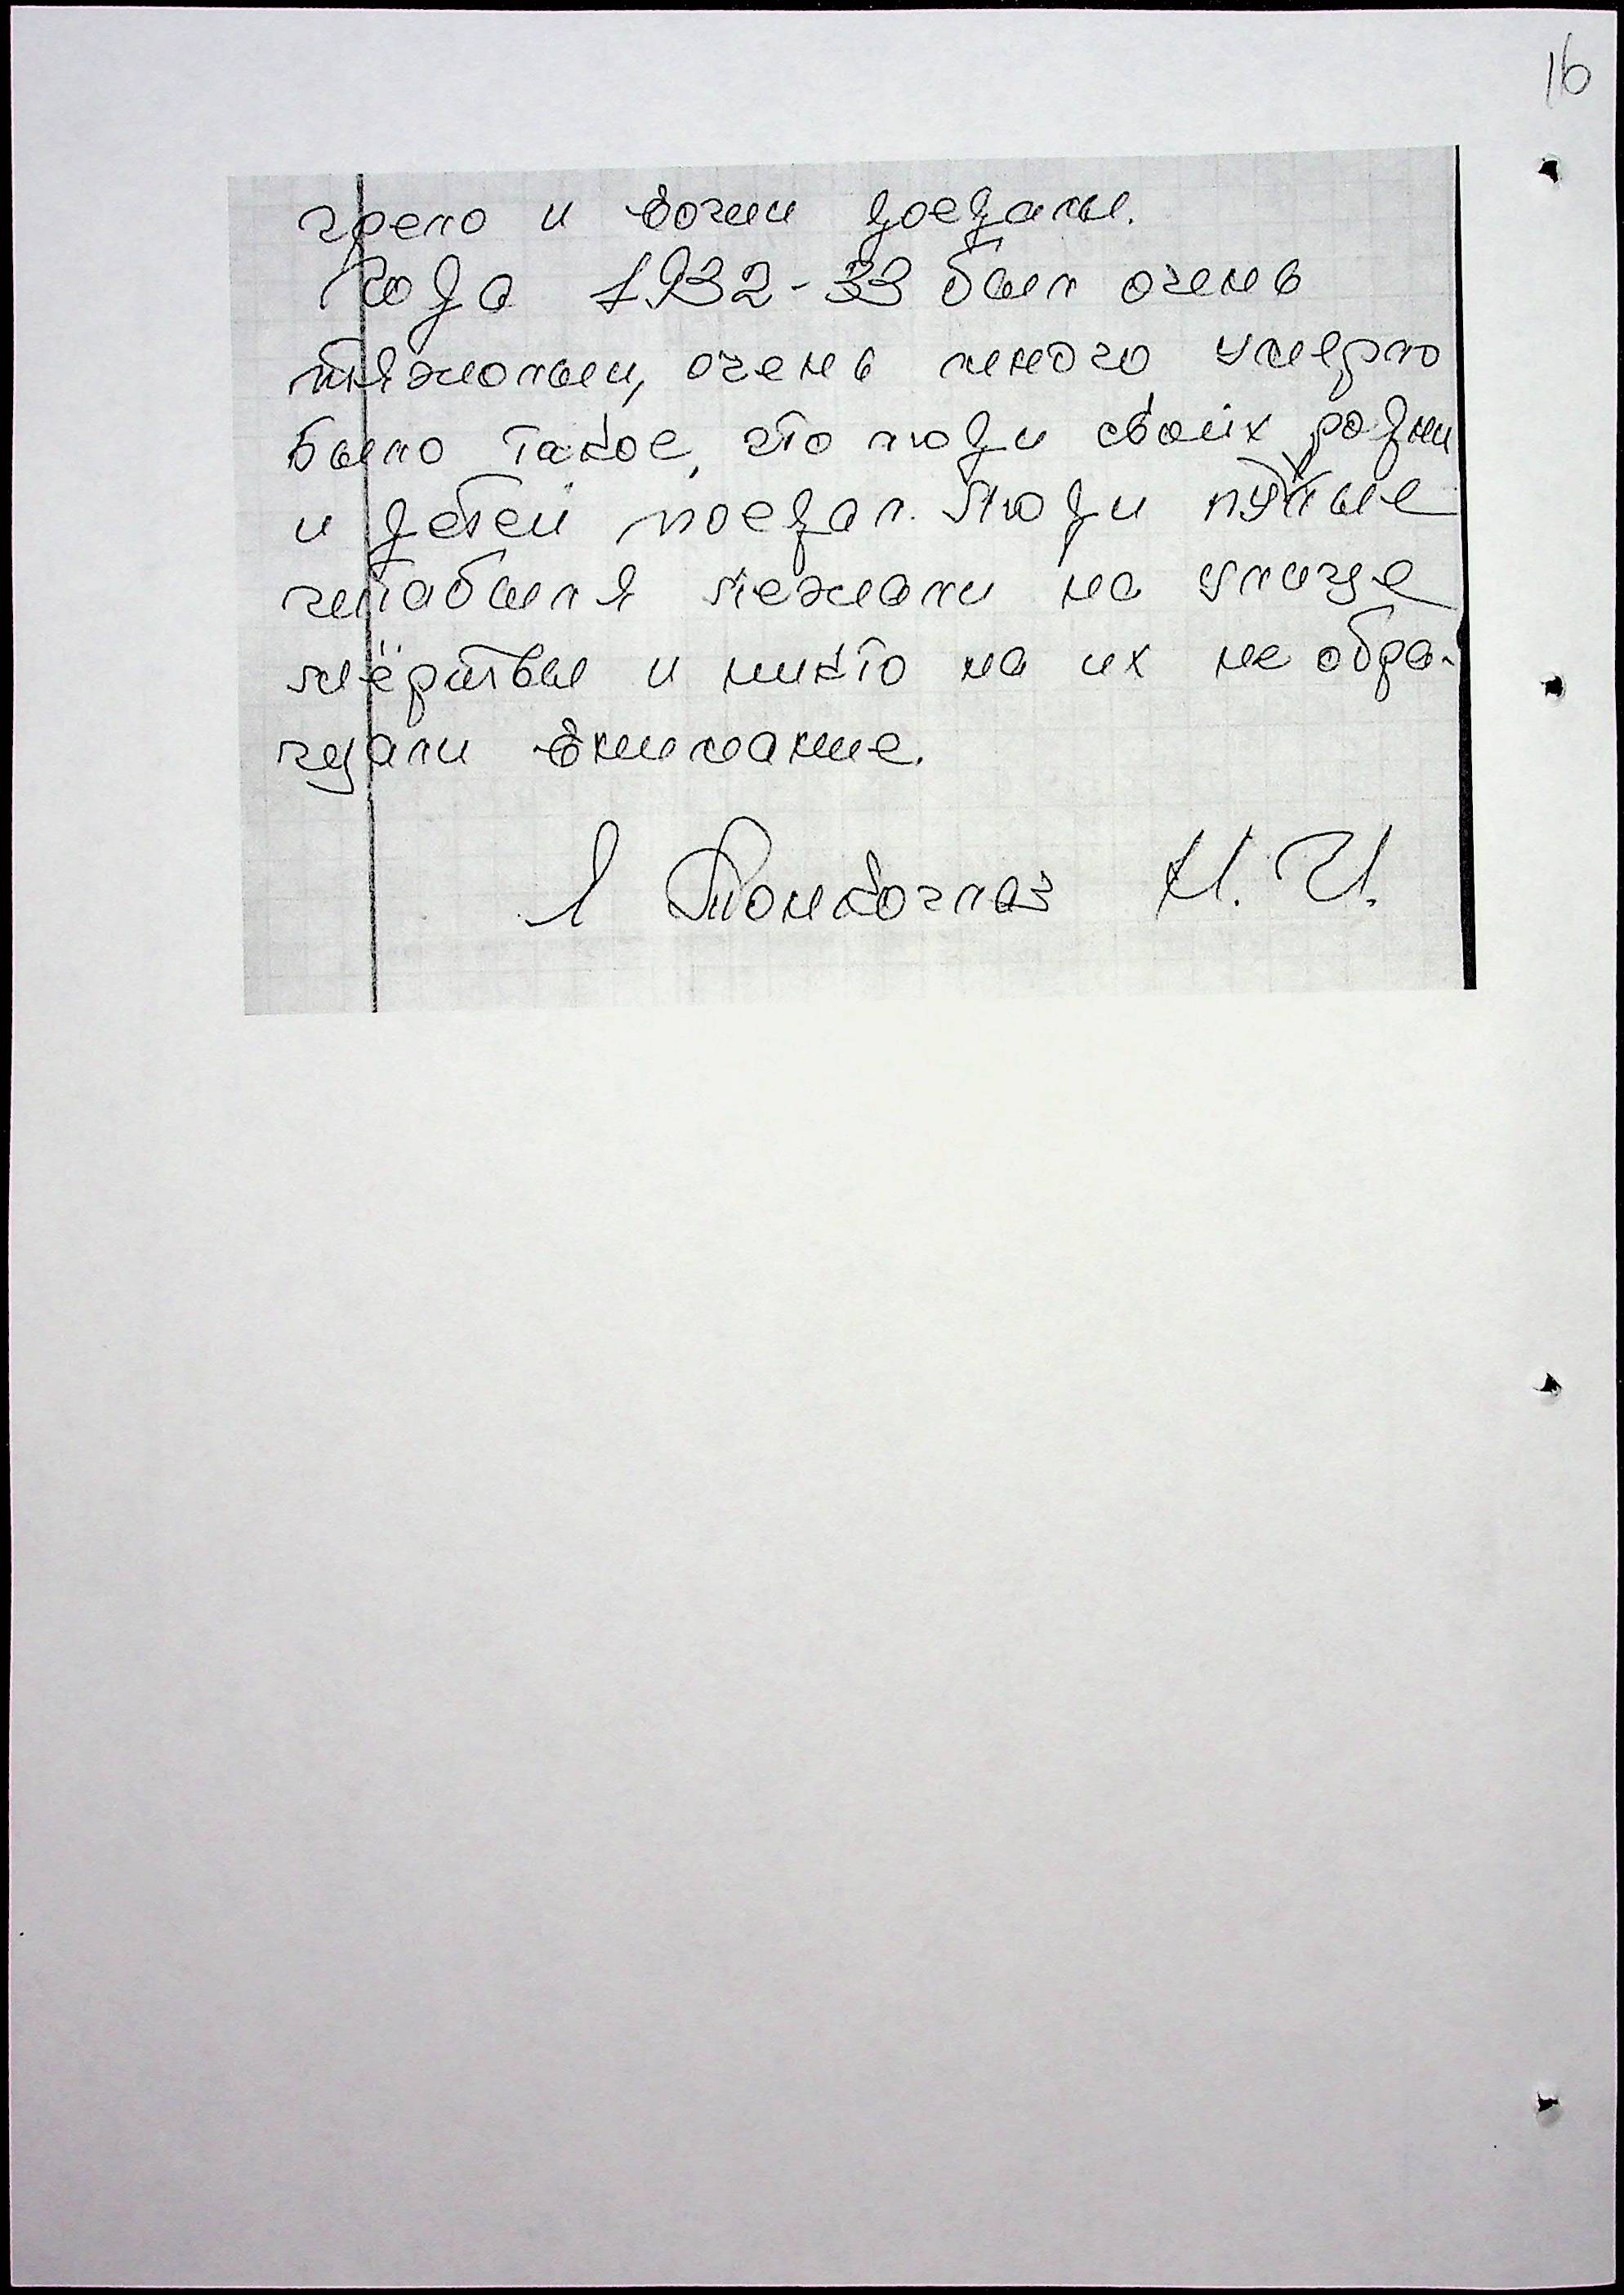 16
грело и вочии доедалы.
Года 1932-33 был очень
тяжолыи, очень много умерло
было такое, что люди своих родни
и детей поедал. Люди пухлые
лежали на улице
мёртвы и никто на их не обра-
щали внимание.
Я Тонкоглаз Н. И.